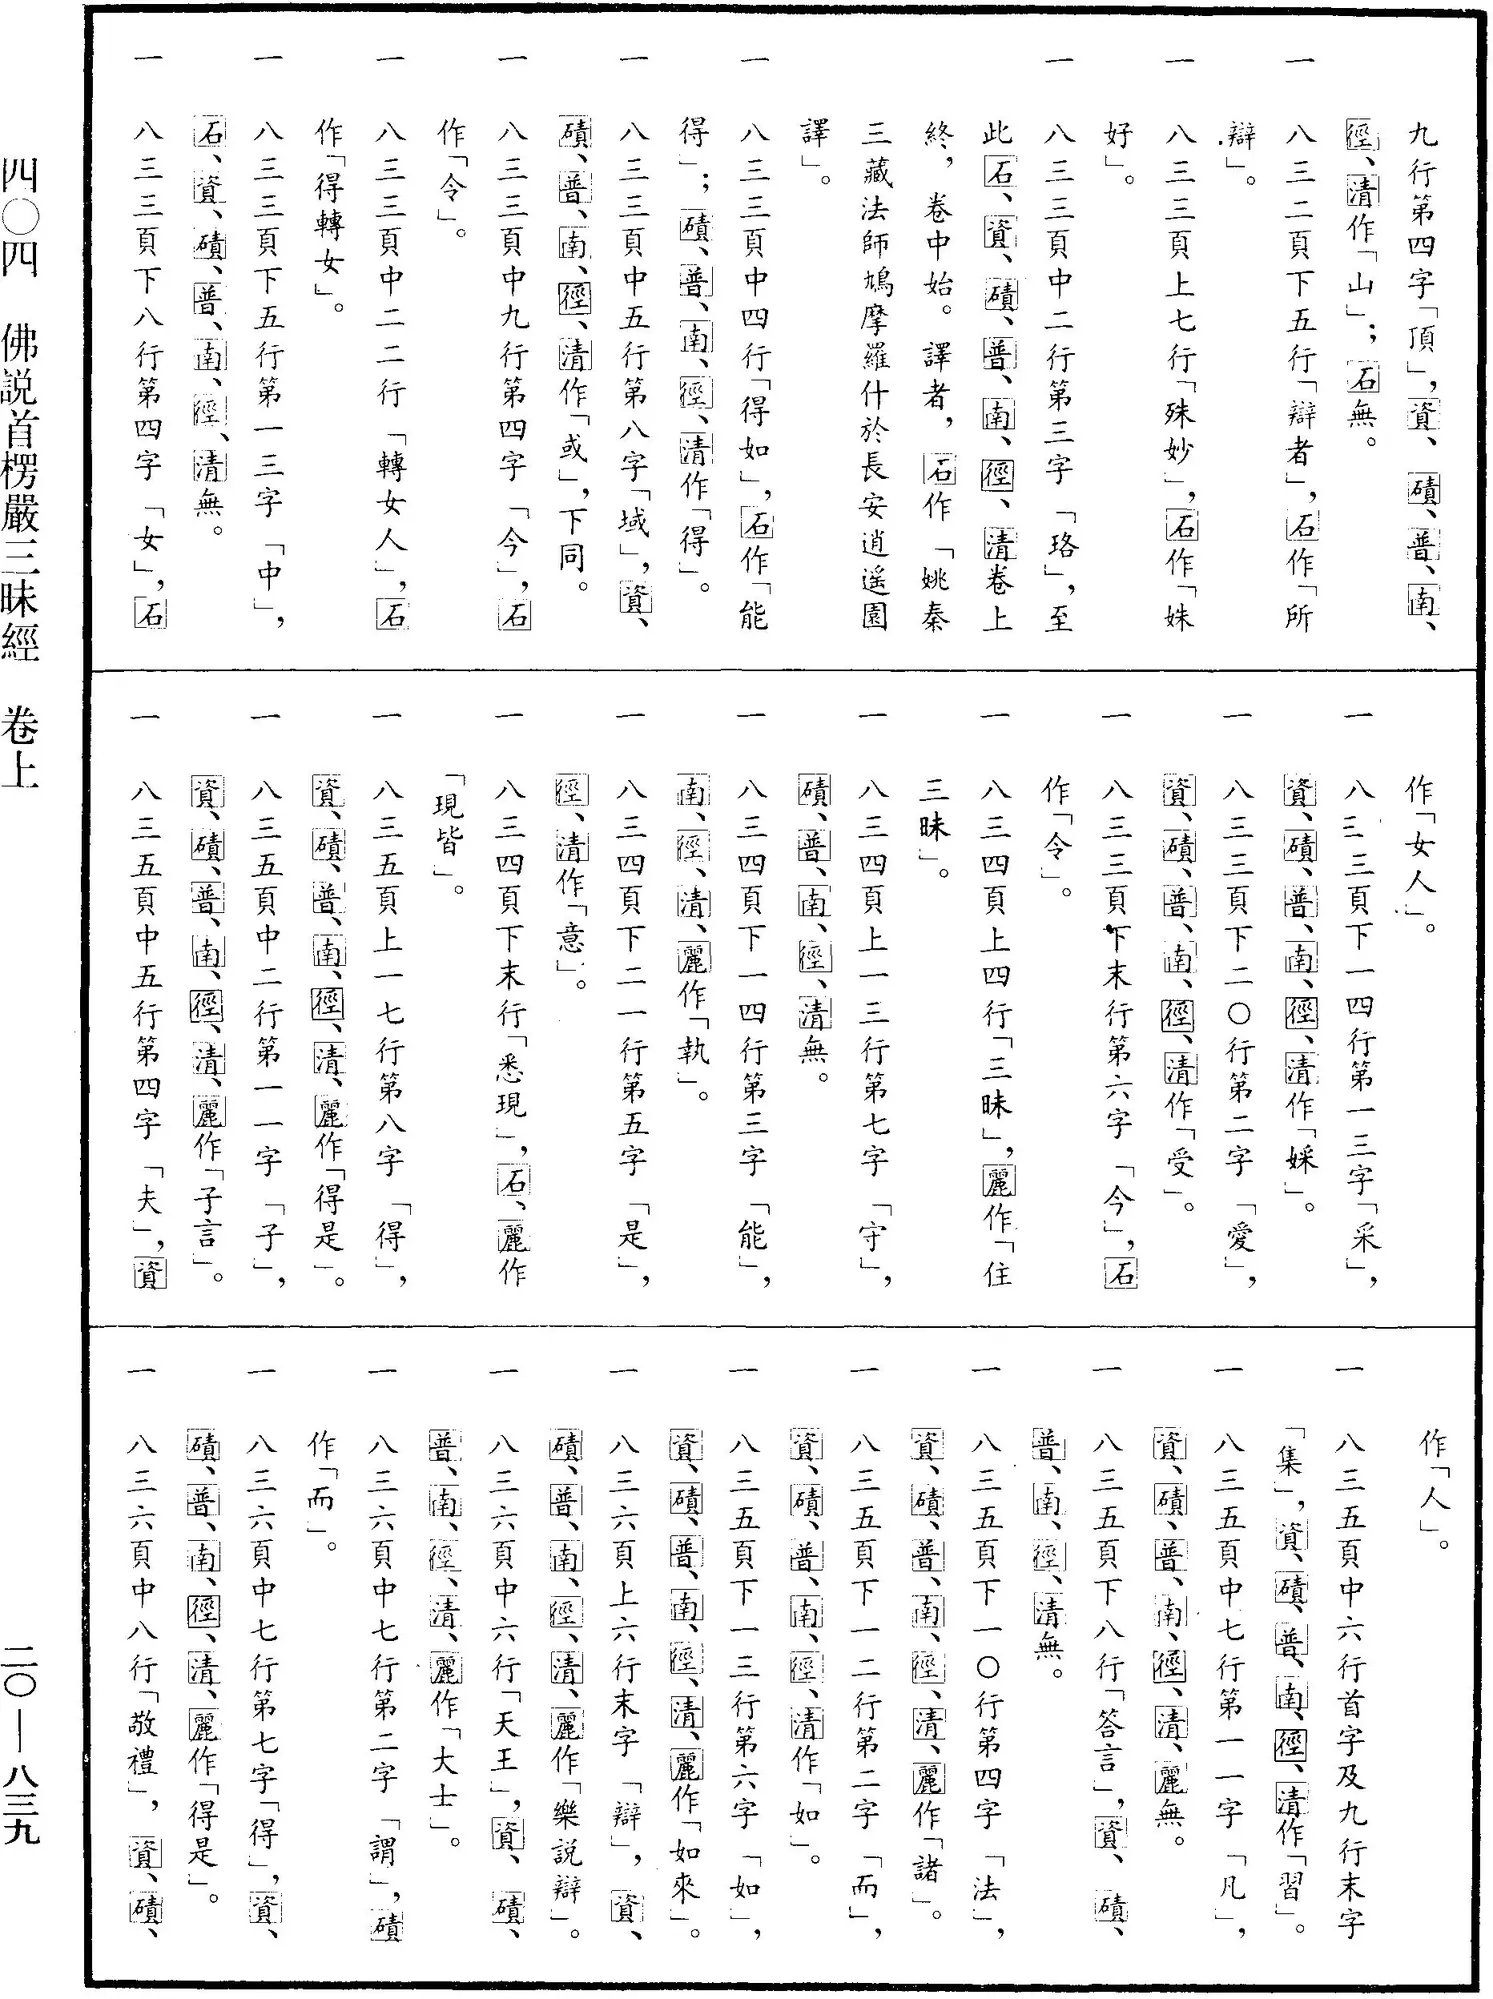 九行第四字「頂」，資、磧、普、南、
徑、清作「山」；石無。
一　八三二頁下五行「辯者」，石作「所
辯」。
一　八三三頁上七行「殊妙」，石作「姝
好」。
一　八三三頁中二行第三字「珞」，至
此石、資、磧、普、南、徑、清卷上
終，卷中始。譯者，石作「姚秦
三藏法師鳩摩羅什於長安逍遥園
譯」。
一　八三三頁中四行「得如」，石作「能
得」；磧、普、南、徑、清作「得」。
一　八三三頁中五行第八字「域」，資、
磧、普、南、徑、清作「或」，下同。
一　八三三頁中九行第四字「今」，石
作「令」。
一　八三三頁中二二行「轉女人」，石
作「得轉女」。
一　八三三頁下五行第一三字「中」，
石、資、磧、普、南、徑、清無。
一　八三三頁下八行第四字「女」，石
作「女人」。
一　八三三頁下一四行第一三字「采」，
資、磧、普、南、徑、清作「婇」。
一　八三三頁下二〇行第二字「愛」，
資、磧、普、南、徑、清作「受」。
一　八三三頁下末行第六字「今」，石
作「令」。
一　八三四頁上四行「三昧」，麗作「住
三昧」。
一　八三四頁上一三行第七字「守」，
磧、普、南、徑、清無。
一　八三四頁下一四行第三字「能」，
南、徑、清、麗作「執」。
一　八三四頁下二一行第五字「是」，
徑、清作「意」。
一　八三四頁下末行「悉現」，石、麗作
「現皆」。
一　八三五頁上一七行第八字「得」，
資、磧、普、南、徑、清、麗作「得是」。
一　八三五頁中二行第一一字「子」，
資、磧、普、南、徑、清、麗作「子言」。
一　八三五頁中五行第四字「夫」，資
作「人」。
一　八三五頁中六行首字及九行末字
「集」，資、磧、普、南、徑、清作「習」。
一　八三五頁中七行第一一字「凡」，
資、磧、普、南、徑、清、麗無。
一　八三五頁下八行「答言」，資、磧、
普、南、徑、清無。
一　八三五頁下一〇行第四字「法」，
資、磧、普、南、徑、清、麗作「諸」。
一　八三五頁下一二行第二字「而」，
資、磧、普、南、徑、清作「如」。
一　八三五頁下一三行第六字「如」，
資、磧、普、南、徑、清、麗作「如來」。
一　八三六頁上六行末字「辯」，資、
磧、普、南、徑、清、麗作「樂説辯」。
一　八三六頁中六行「天王」，資、磧、
普、南、徑、清、麗作「大士」。
一　八三六頁中七行第二字「謂」，磧
作「而」。
一　八三六頁中七行第七字「得」，資、
磧、普、南、徑、清、麗作「得是」。
一　八三六頁中八行「敬禮」，資、磧、
四〇四　佛説首楞嚴三昧經　卷上
二〇—八三九